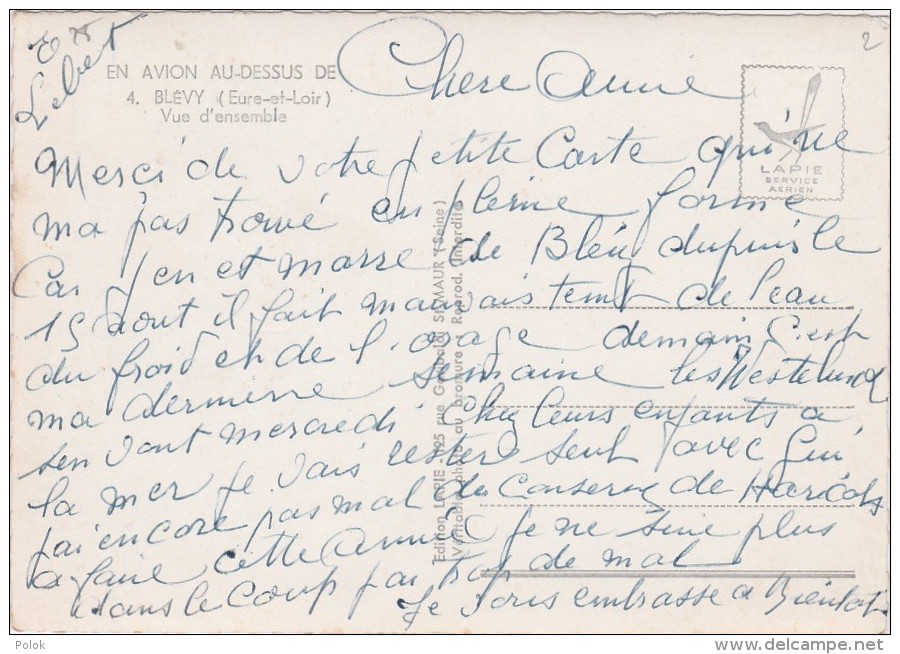 E 28
Lebert
2
EN AVION AU-DESSUS DE
4. BLÉVY (Eure-et-Loir)
Vue d'ensemble
LAPIE
SERVICE
AERIEN
Chere Anne
Merci de votre petite Carte qui ne
ma pas trouvé en pleine forme
Car j'en et marre de Bléu dupuis le
15 aout il fait mauvais temt de l'eau
du froid et de l'orage demain c'est
ma dernière semaine les Westelund
s'en vont mercredi chez leurs enfants a
la mer je vais rester seul avec Gui
j'ai encore pas mal de Conserve de Haricots
a faire cette année je ne suie plus
dans le coup j'ai trop de mal
Je vous embrasse a Bientot
Edition LAPIE - 125 rue Garibaldi St MAUR (Seine)
Véritable photo au bromure - Reprod. Interdite
Polok
www.delcampe.net